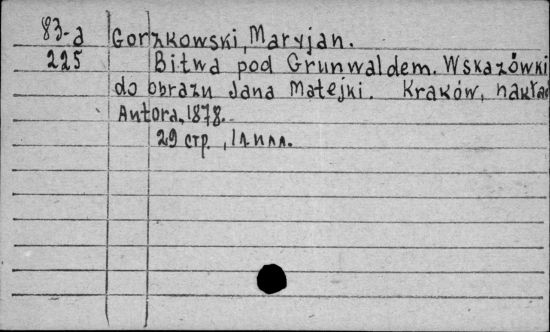 83-a Gorzkowski, Maryjan.
225 Bitwa pod Grunwaldem. Wskazówki
do obrazu Jana Matejki. Kraków, nakład
Autora, 1878.
29 стр., 1 л илл.